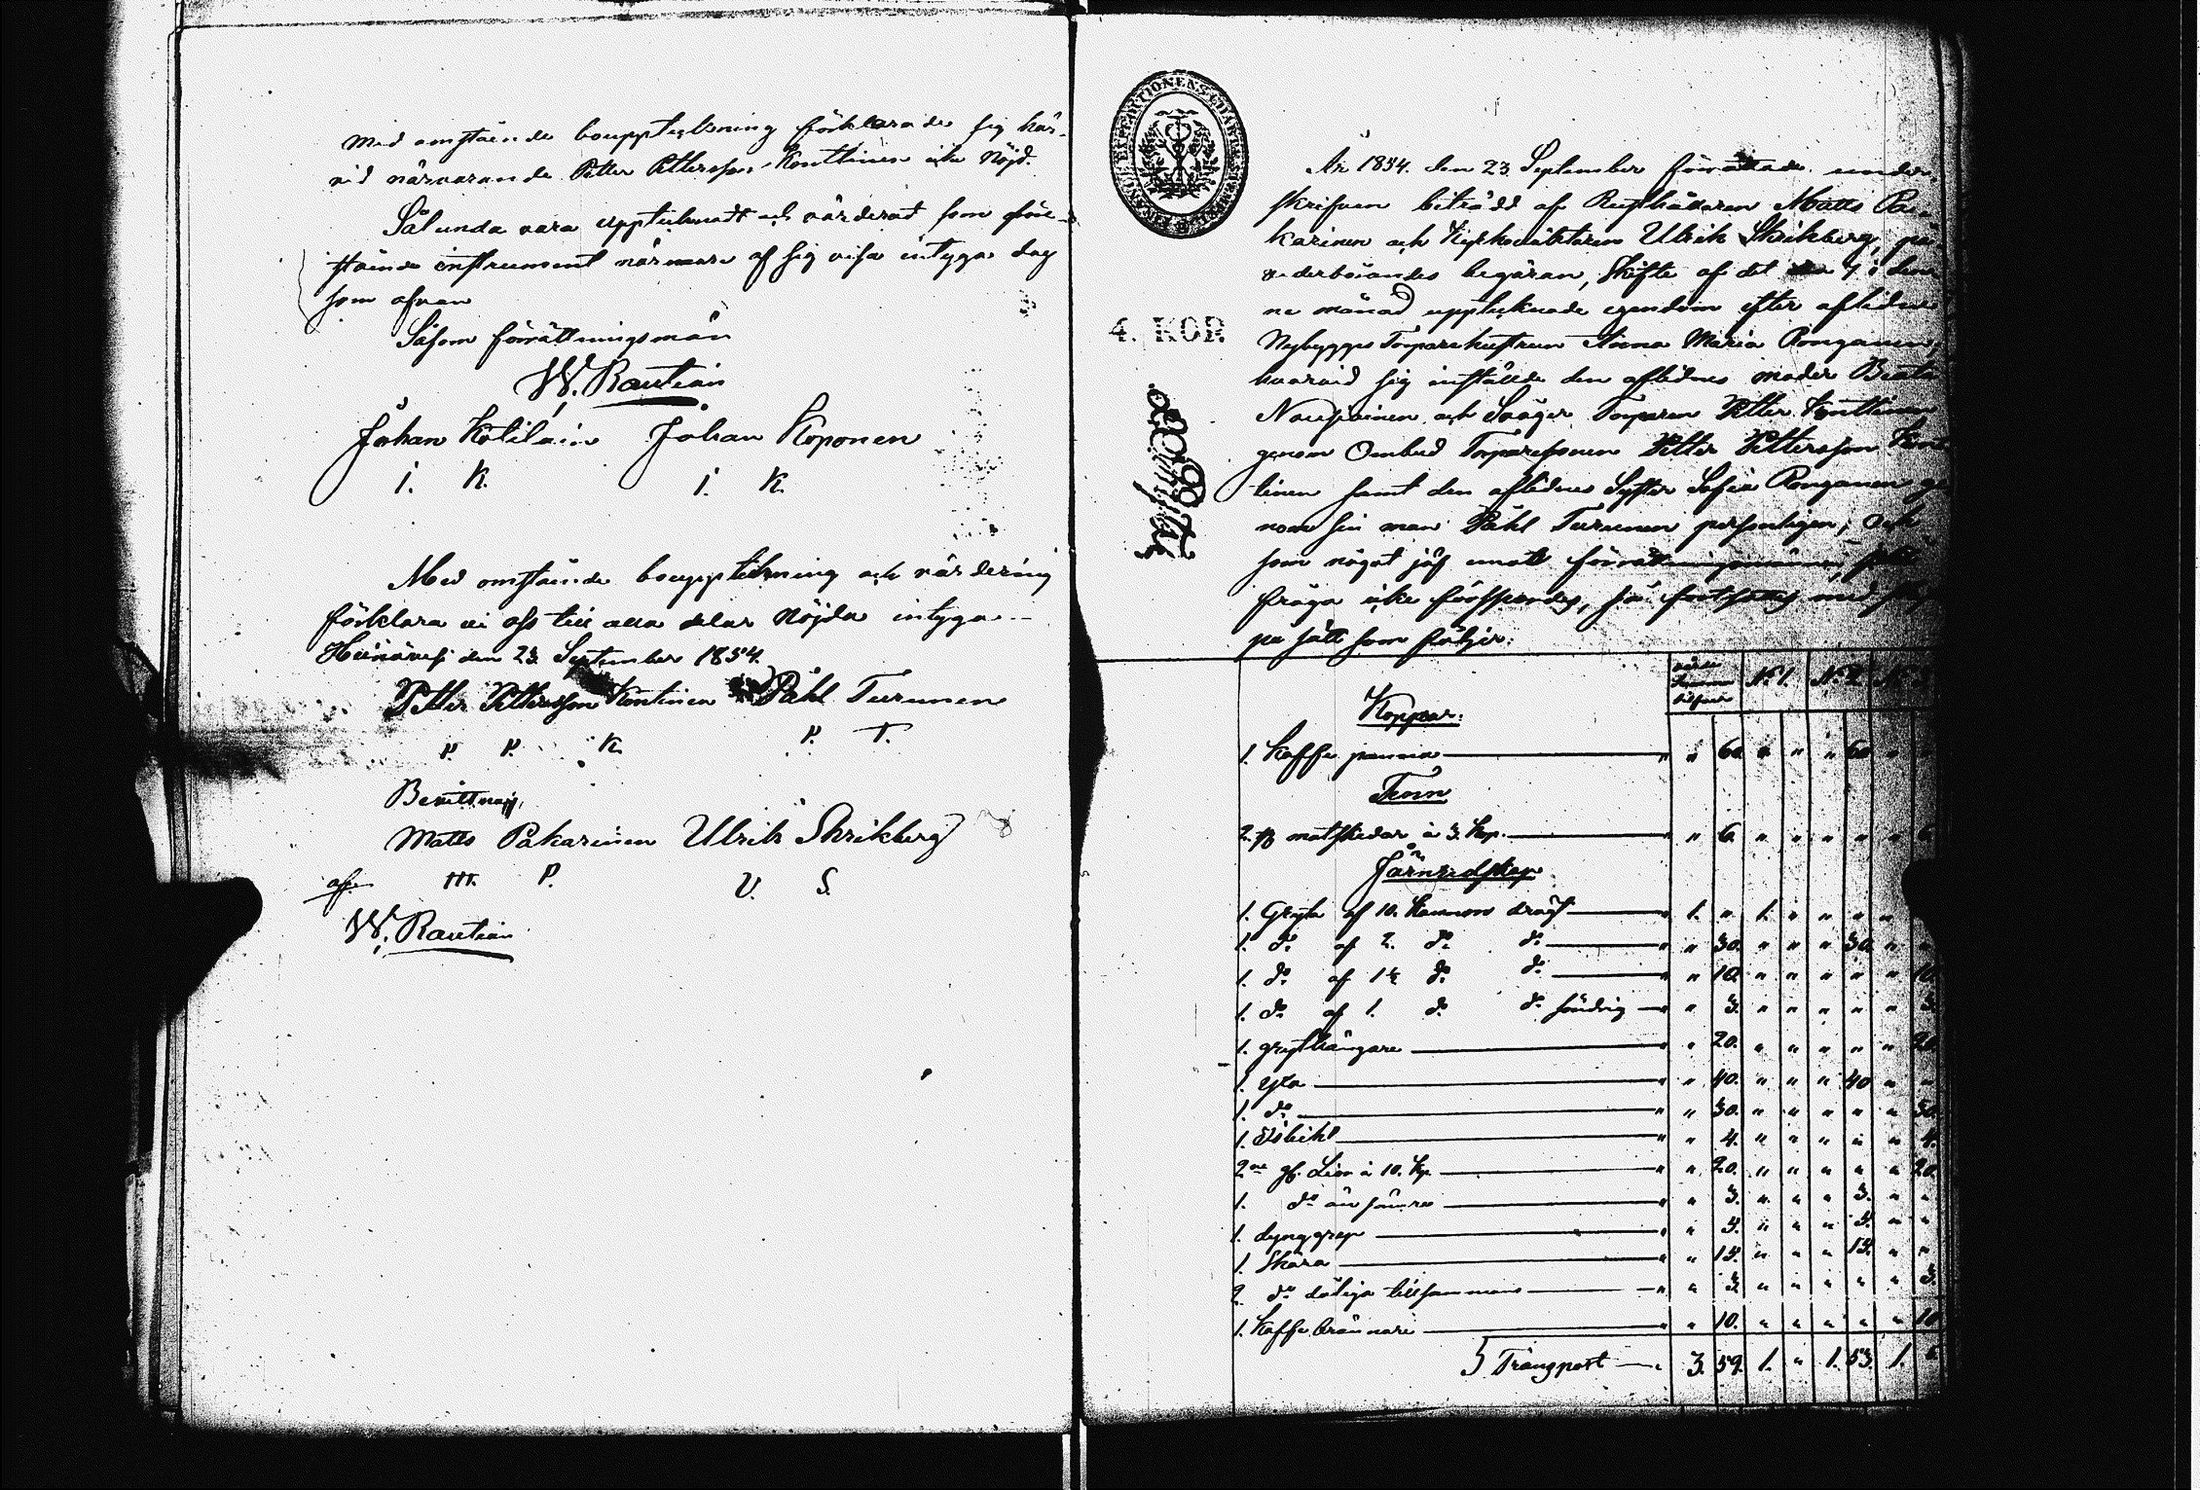 Med omstående bouppteckning förklarade sig här-
vid närvarande Petter Pettersson Konttinen icke nöjd.
Sålunda vara upptecknadt och värderat som före-
stående instrument närmare af sig visa intyga dag
som ofvan
Såsom förrättningsmän
W. Rautiain
Johan Kotilain Johan Koponen
I. K. I. K.
Med omstående bouppteckning och värdering
förklara vi oss till alla delar nöjda intyga
Heinävesi den 23 September 1854.
Petter Pettersson Kontinen Påhl Turunen
P. P. K. P. T.
Bevittnas,
Matts Pakarinen Ulrik Skrikberg
M. P. U. S.
af
W. Rautiain
År 1854. den 23 September förrättade under-
skrifven biträdd af Rusthållaren Matts Pa-
karinen och Ulrik Skrikberg, på
vederbörandes begäran, Skifte af det 7 i den
ne månad upptecknade egendom efter aflidne
Nybygges Torparehustrun Anna Maria Ronganen,
hvarvid sig inställde den aflidnes moder Beata
Nousiainen och Svåger Torparen Petter Konttinen
genom Ombud Torparesonen Petter Pettersson Kont
tinen samt den aflidnes Syster Sofia Ronganen ge
nom sin man Påhl Turunen personligen; och
som något jäf emot förrättningsmännen
fråga icke förefanns, så fortsattes med
på sätt som följer:
4. KOP.
No 1. No 2. No 3
Koppar:
1. Kaffe panna " " 60. " " " 60 " "
Tenn
2. st matskedar à 3. Kop. " " 6. " " " " " 6.
Järnredskap
1. Gryta af 10. Kannors drägt " 1. " 1. " " " "
1. do af 2. do do " " 30. " " " 30. " "
1. do af 1½ do do " " 10. " " " " " 10
1. do af 1. do do söndrig " " 3. " " " " " 3.
1. grythängare " " 20. " " " " " 20
1. Yxa " " 40. " " " 40 " "
1. do " " 30. " " " " " 30.
1. " " 4. " " " " " 4.
2ne st. Liar à 10. Kp. " " 20. " " " " " 20.
1. do än sämre " " 3. " " " 3. " "
1. dynggrep " " " " " " "
1. Skära " " 15. " " " 15. " "
2. do dåliga tillsammans " " 3. " " " " " 3.
1. Kaffe brännare " " 10. " " " " " 10
Transport 3. 59. 1. " 1. 53. 1. 6